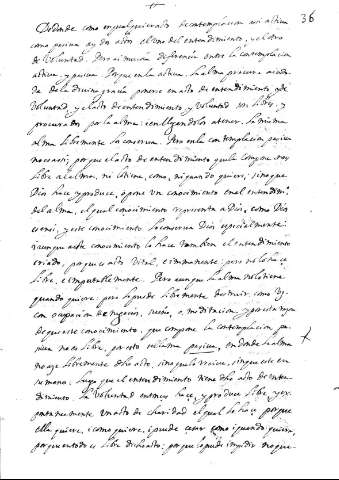 36
De donde como en qualquier acto de contemplacion assi activa
como pasiva ay dos actos el uno del entendimiento, y el otro
de voluntad. Pero ai mucha diferencia entre la contemplacion
activa, y pasiva. Porque en la activa la alma procura
da de la divina gracia ponerse en acto de entendimiento, y de
voluntad, y el acto de entendimiento, y voluntad son libres, y
procurados por la alma: i en llegandolos a tener, la misma
alma libremente los conserva. Pero en la contemplacion pasiva
no es assi; porque el acto de entendimiento que la compone no es
libre a el alma, ni lo tiene, como, ni quando quiere; sino que
Dios hace y produce, o pone un conocimiento en el entendim.
del alma, el qual conocimiento representa a Dios, como Dios
es en si, y este conocimiento lo conserva Dios especialmente:
i aunque este conocimiento lo hace tambien el entendimiento
criado, porque es acto vital, e immanente; pero no lo hace
libre, e imputablemente. Pero aunque la alma no lo tiene
quando quiere; pero lo puede libremente destruir, como
con ocupacion de negocios, sueño, o meditacion, y por esta razon
de que este conocimiento, que compone la contemplacion pa-
siva no es libre, por esto se llama pasiva, en donde la alma
no aze libremente dho acto, sino que lo recive, sin que este en
su mano. Luego que el entendimiento tiene dho acto de enten-
dimiento, la voluntad entonces hace, y produce libre, y es-
pontaneamente un acto de charidad el qual lo hace porque
ella quiere, i como quiere, i puede cesar como i quando quiera,
porque en todo es libre dicho acto; porque lo puede impedir no que-